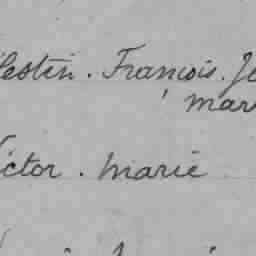 lestin. François. Je
mar
ictor. marie